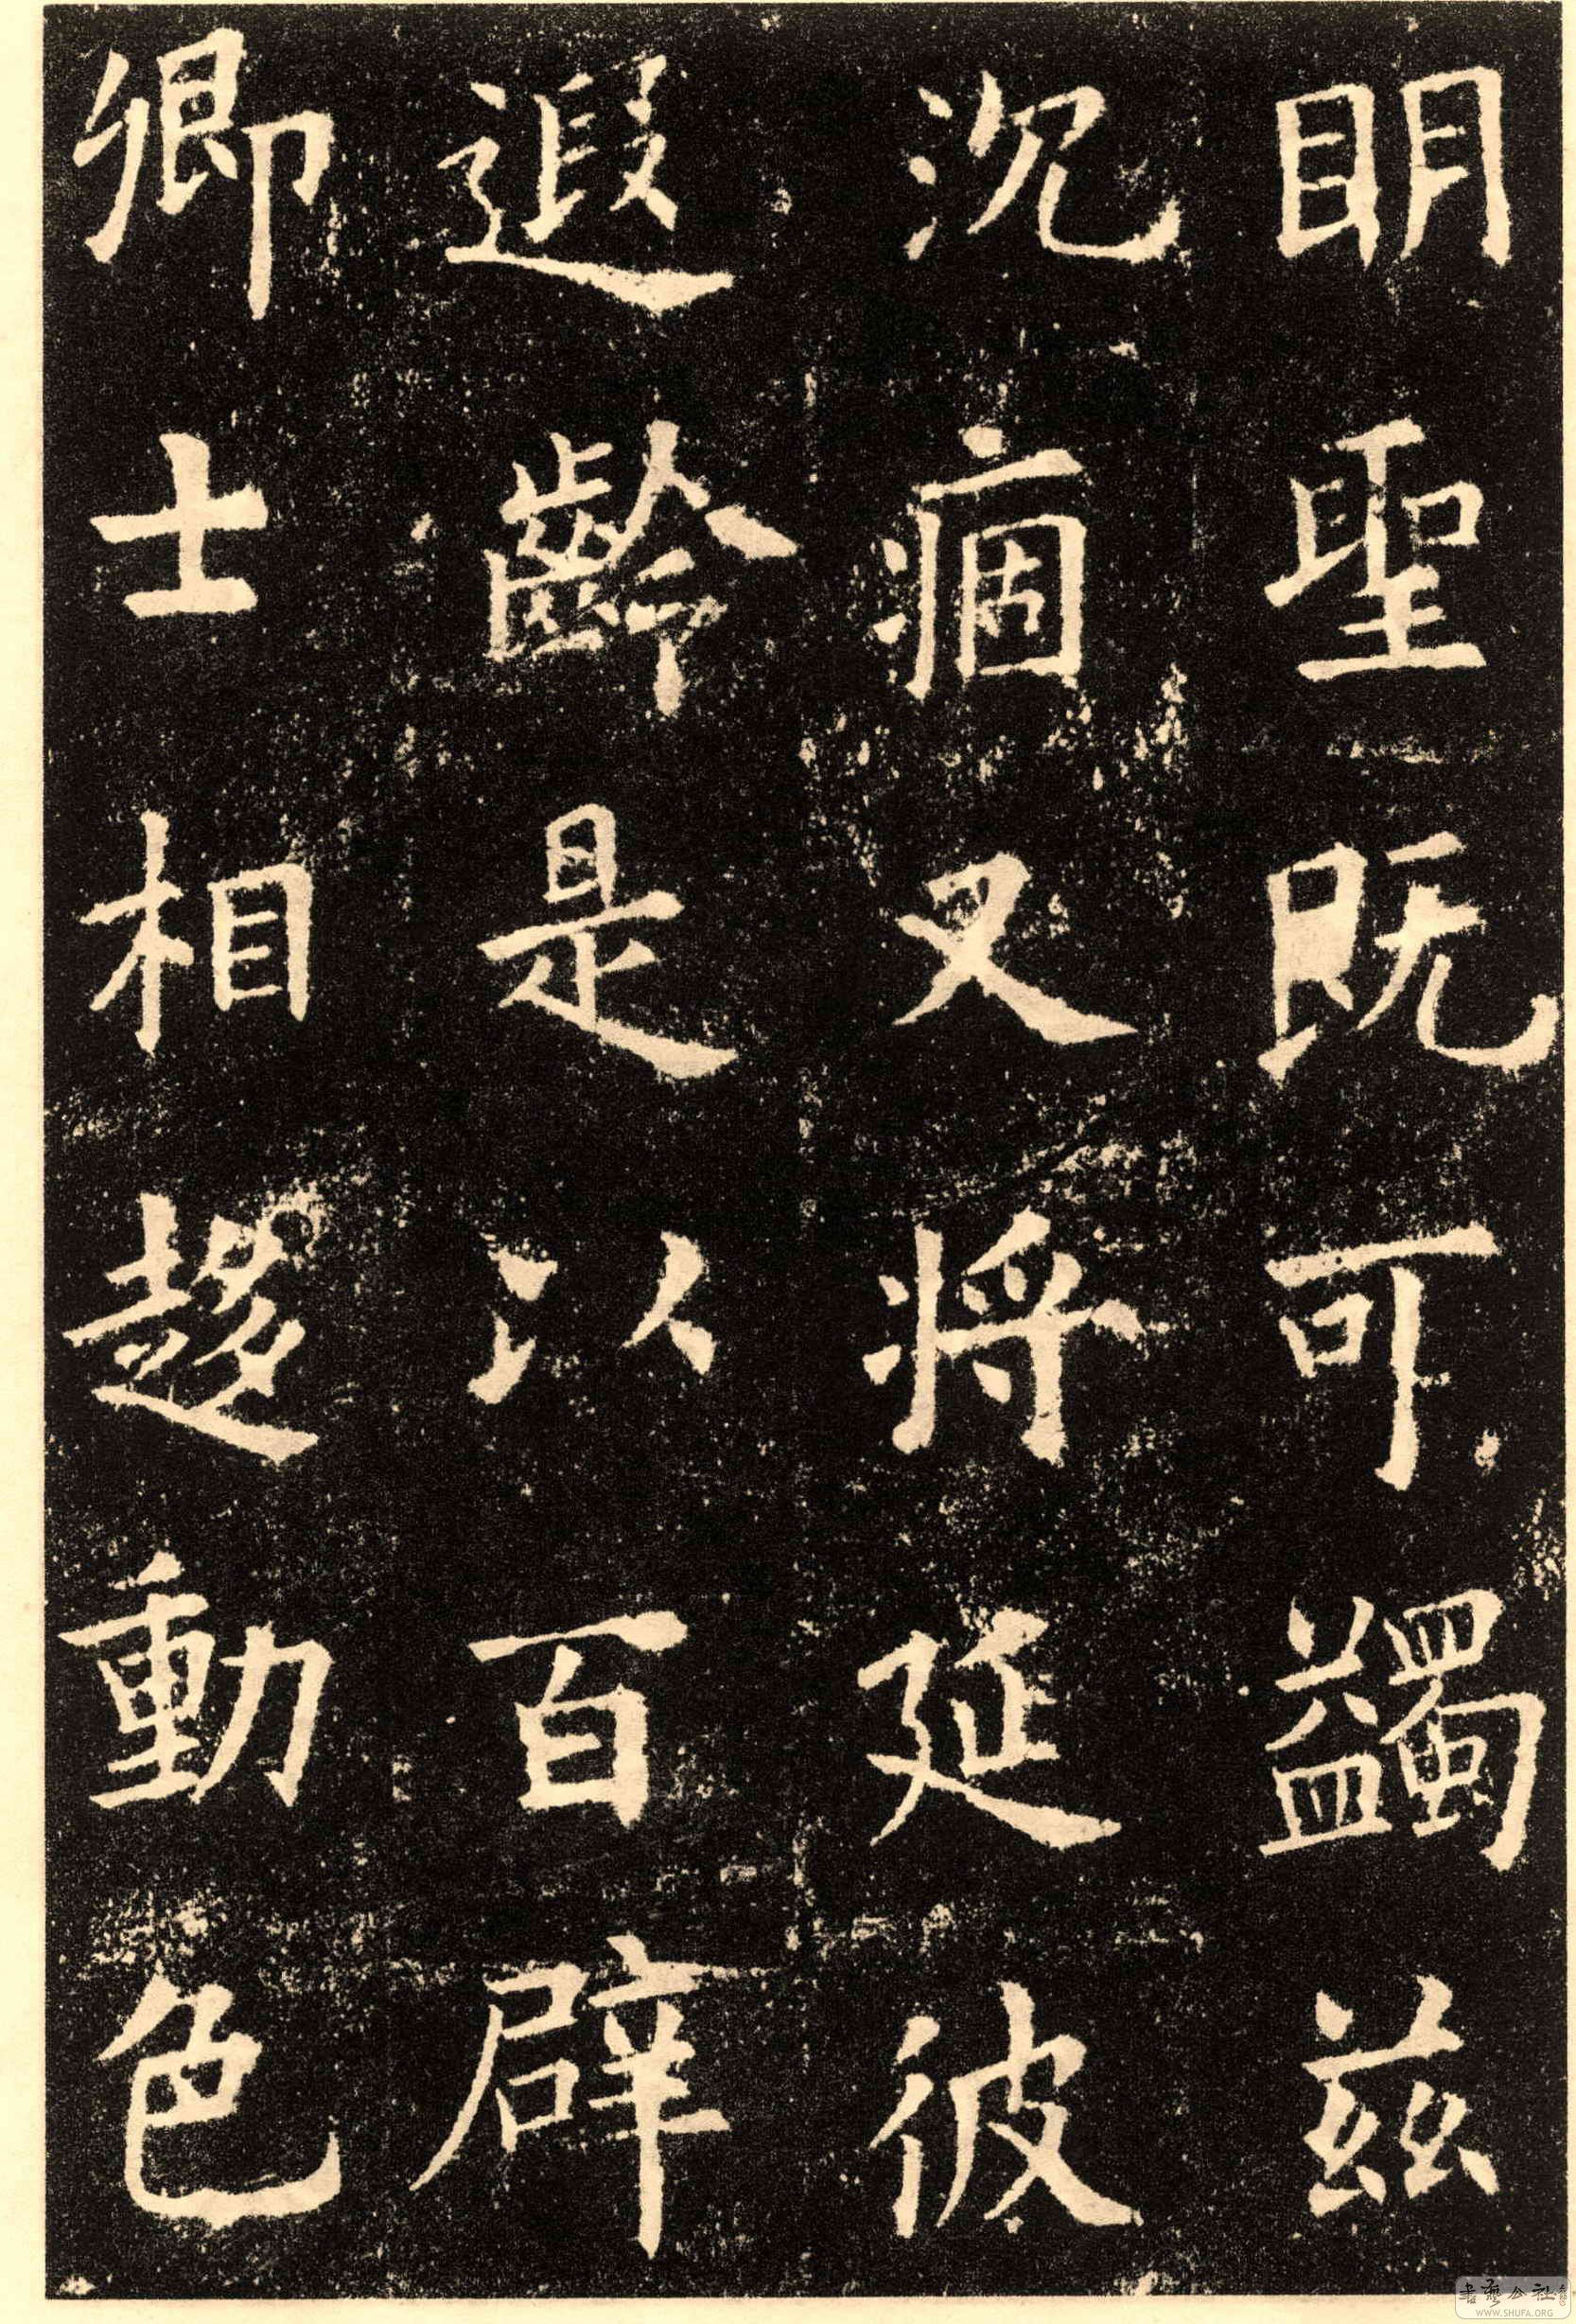 明聖既可蠲茲
沉痼又將延彼
遐齡是以百辟
卿士相趍動色
書藝公社
WWW.SHUFA.ORG